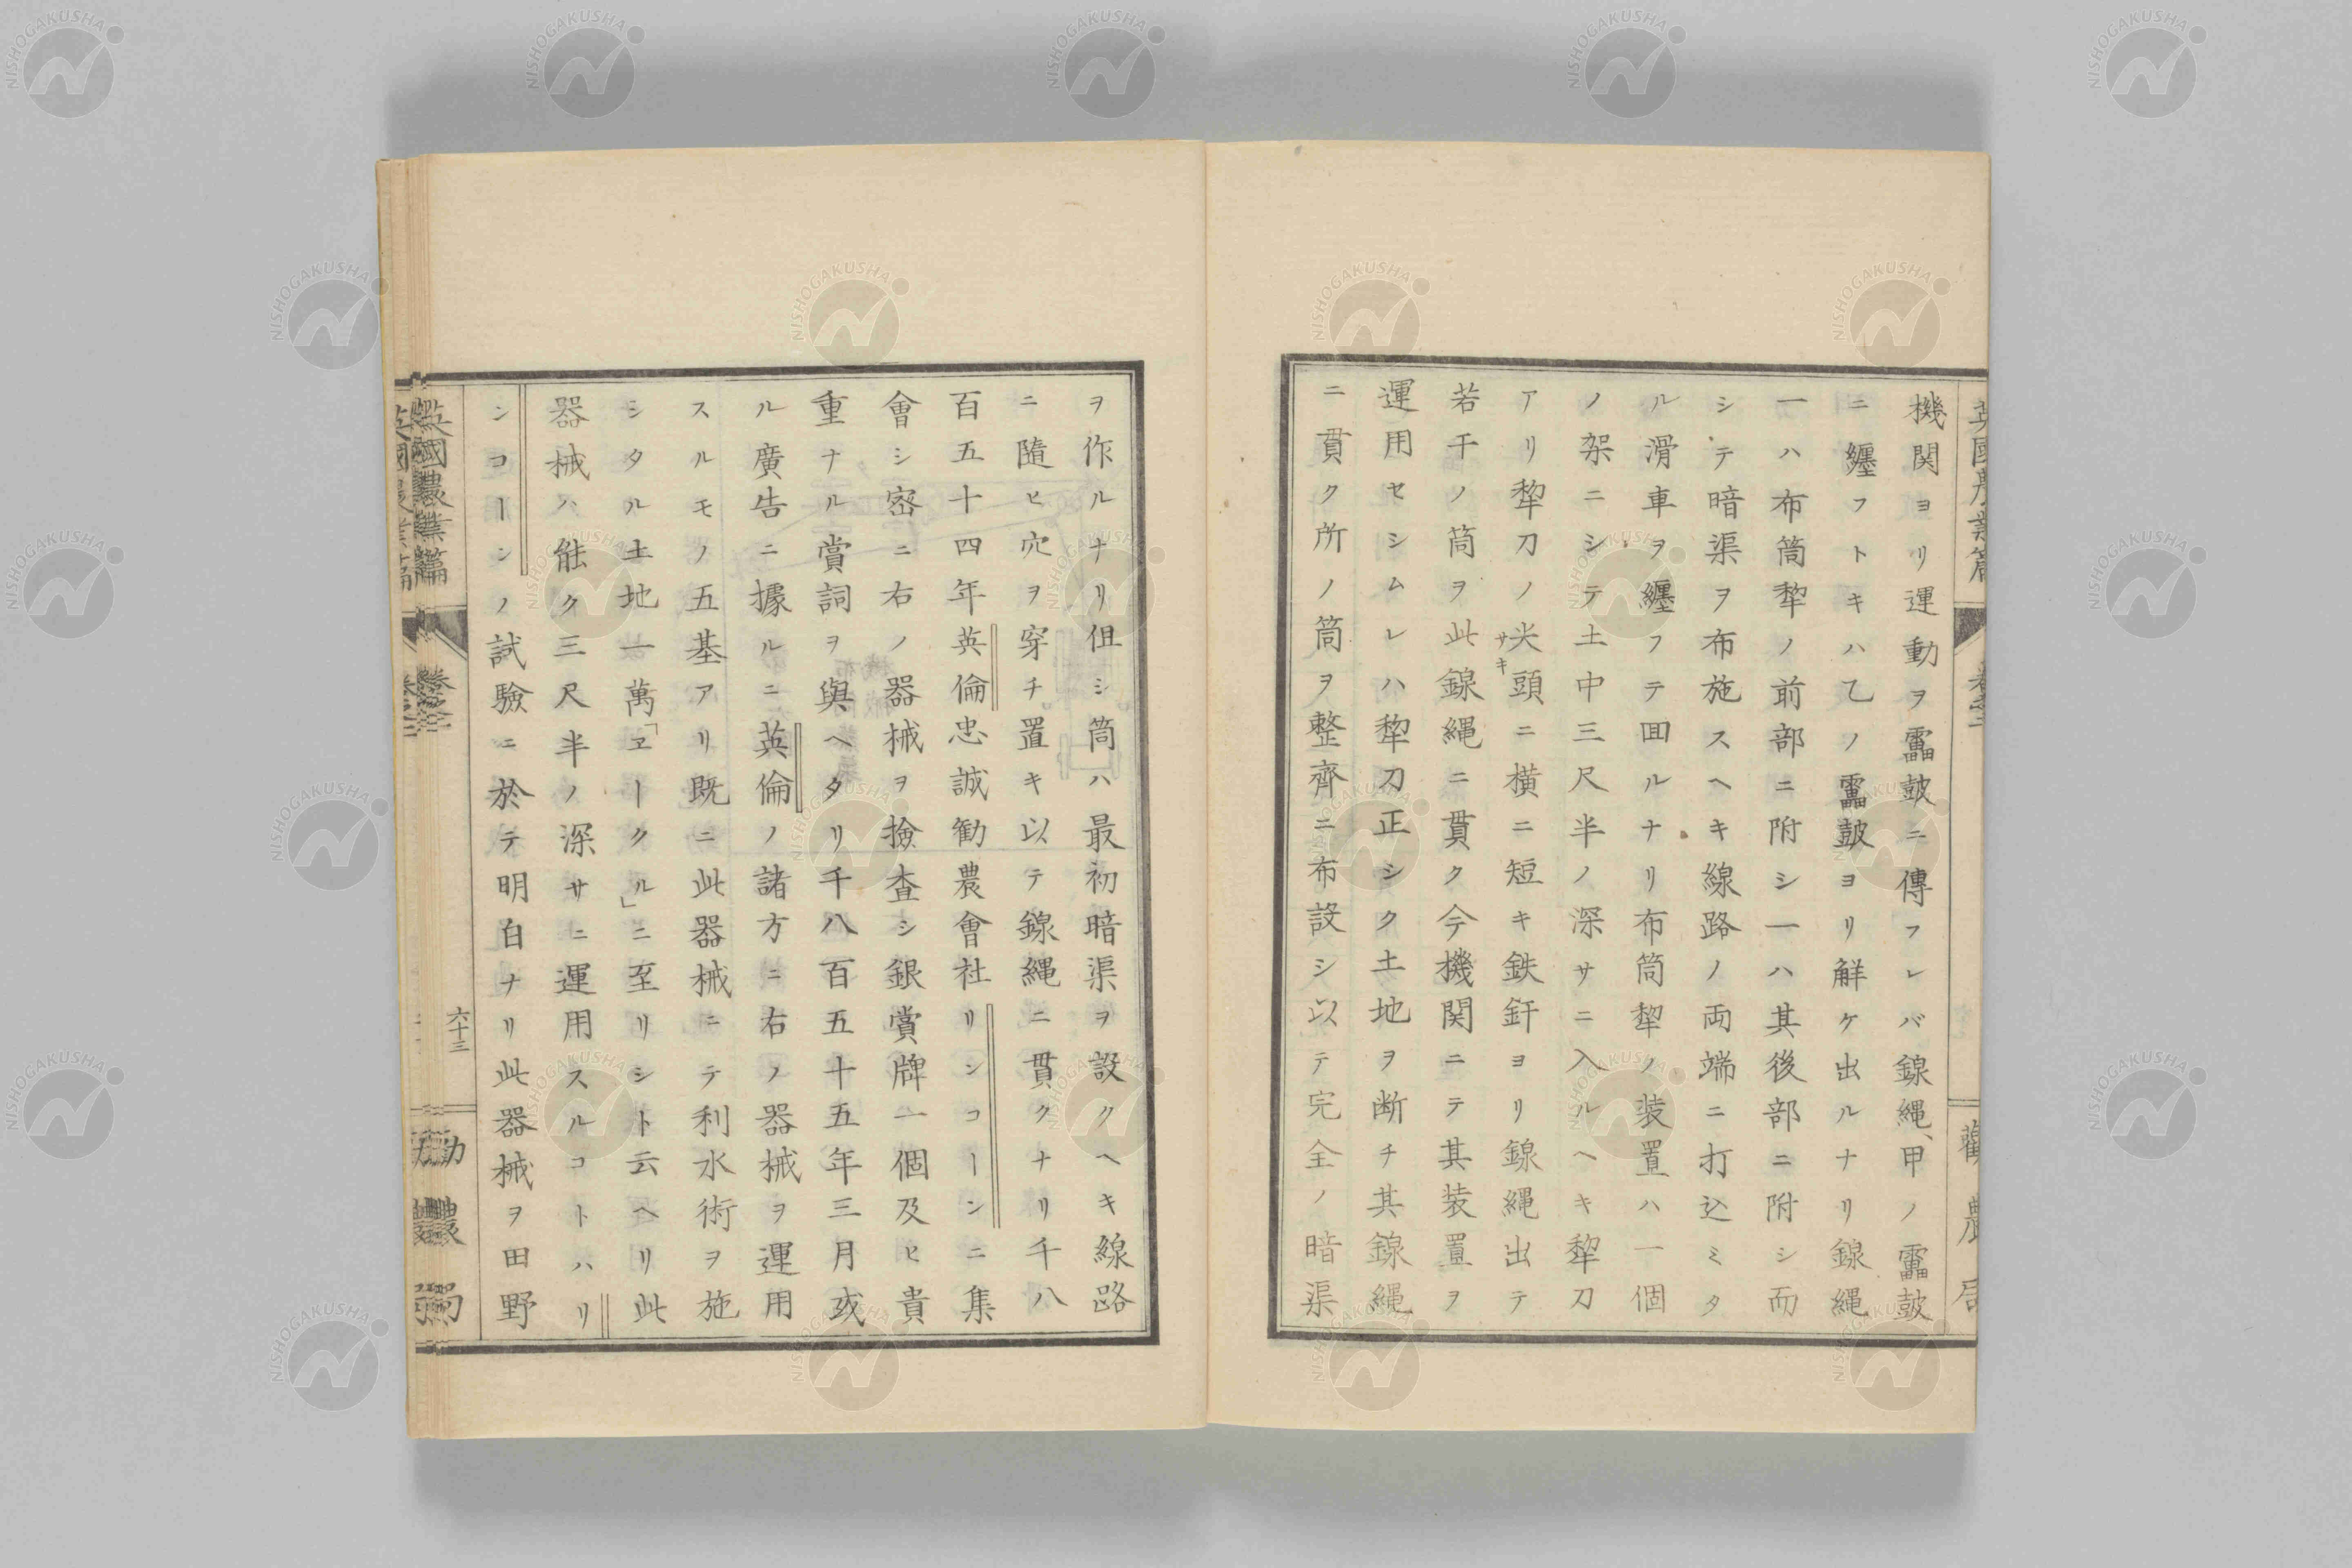 機関ヨリ運動ヲ靁皷ニ傳フレバ鎳縄、甲ノ靁皷
ニ纏フトキハ乙ノ靁皷ヨリ觧ケ出ルナリ鎳縄
一ハ布筒犂ノ前部ニ附シ一ハ其後部ニ附シ而
シテ暗渠ヲ布施スヘキ線路ノ両端ニ打込ミタ
ル滑車ヲ纏フテ囬ルナリ布筒犂ノ装置ハ一個
ノ架ニシテ土中三尺半ノ深サニ入ルヘキ犂刀
アリ犂刀ノ尖頭ニ横ニ短キ鉄釬ヨリ鎳縄出テ
サキ
若干ノ筒ヲ此鎳縄ニ貫ク今機関ニテ其装置ヲ
運用セシムレハ犂刀正シク土地ヲ断チ其鎳縄
ニ貫ク所ノ筒ヲ整齊ニ布設シ以テ完全ノ暗渠
ヲ作ルナリ但シ筒ハ最初暗渠ヲ設クヘキ線路
ニ隨ヒ穴ヲ穿チ置キ以テ鎳縄ニ貫クナリ千八
百五十四年英倫忠誠勧農會社リンコーンニ集
會シ密ニ右ノ器械ヲ撿査シ銀賞牌一個及ヒ貴
重ナル賞詞ヲ與ヘタリ千八百五十五年三月或
ル廣告ニ據ルニ英倫ノ諸方ニ右ノ器械ヲ運用
スルモノ五基アリ既ニ此器械ニテ利水術ヲ施
シタル土地一萬「ヱークル」ニ至リシト云ヘリ此
器械ハ能ク三尺半ノ深サニ運用スルコトハリ
ンコーンノ試驗ニ於テ明白ナリ此器械ヲ田野
英國農業篇
六十三
勸農局